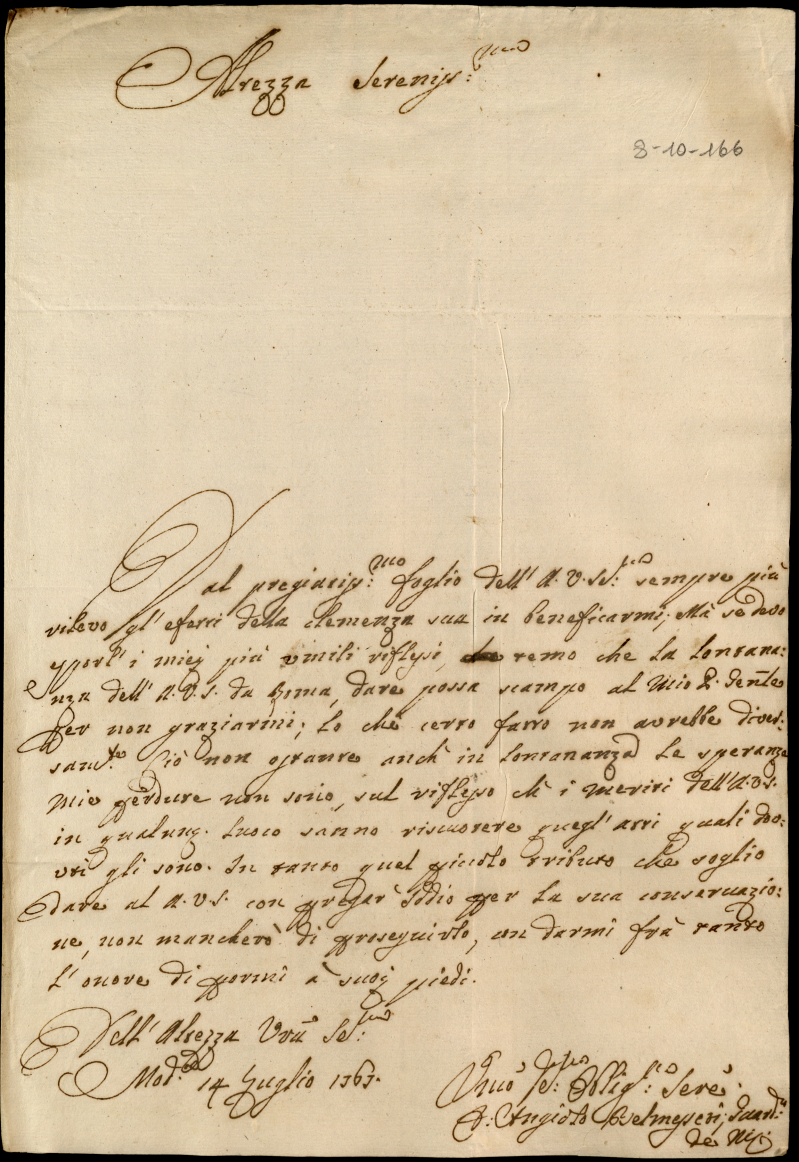 Altezza Sereniss:ma
8-10-166
Dal pregiatiss:mo foglio dell' A. V. Se:ma sempre più
rilevo gl' efetti della clemenza sua in beneficarmi; Mà se devo
esporl' i miej più umili riflessi, temo che la lontana:
nza dell' A. V. S. da Roma, dare possa scampo al Mio P. Gen̄le
per non graziarmi; lo chè certo fatto non avrebbe diver:
sam.te Ciò non ostante anch' in lontananza le speranze
mie perdute non sono, sul riflesso ch' i meriti dell' A. V. S.
in qualunq. luoco sanno riscuotere quegl' atti quali do:
vti gli sono. In tanto quel piccolo tributo che soglio
dare al A. V. S. con pregar' Iddio per la sua conservazio:
ne, non mancherò di proseguirlo, con darmi frà tanto
l' onore di pormi à suoj piedi.
Dell' Altezza Vrā Se:ma
Mod.a 14 Luglio 1767.
Umo De:mo Oblig:mo Sere
F: Angiolo Guard.no
de